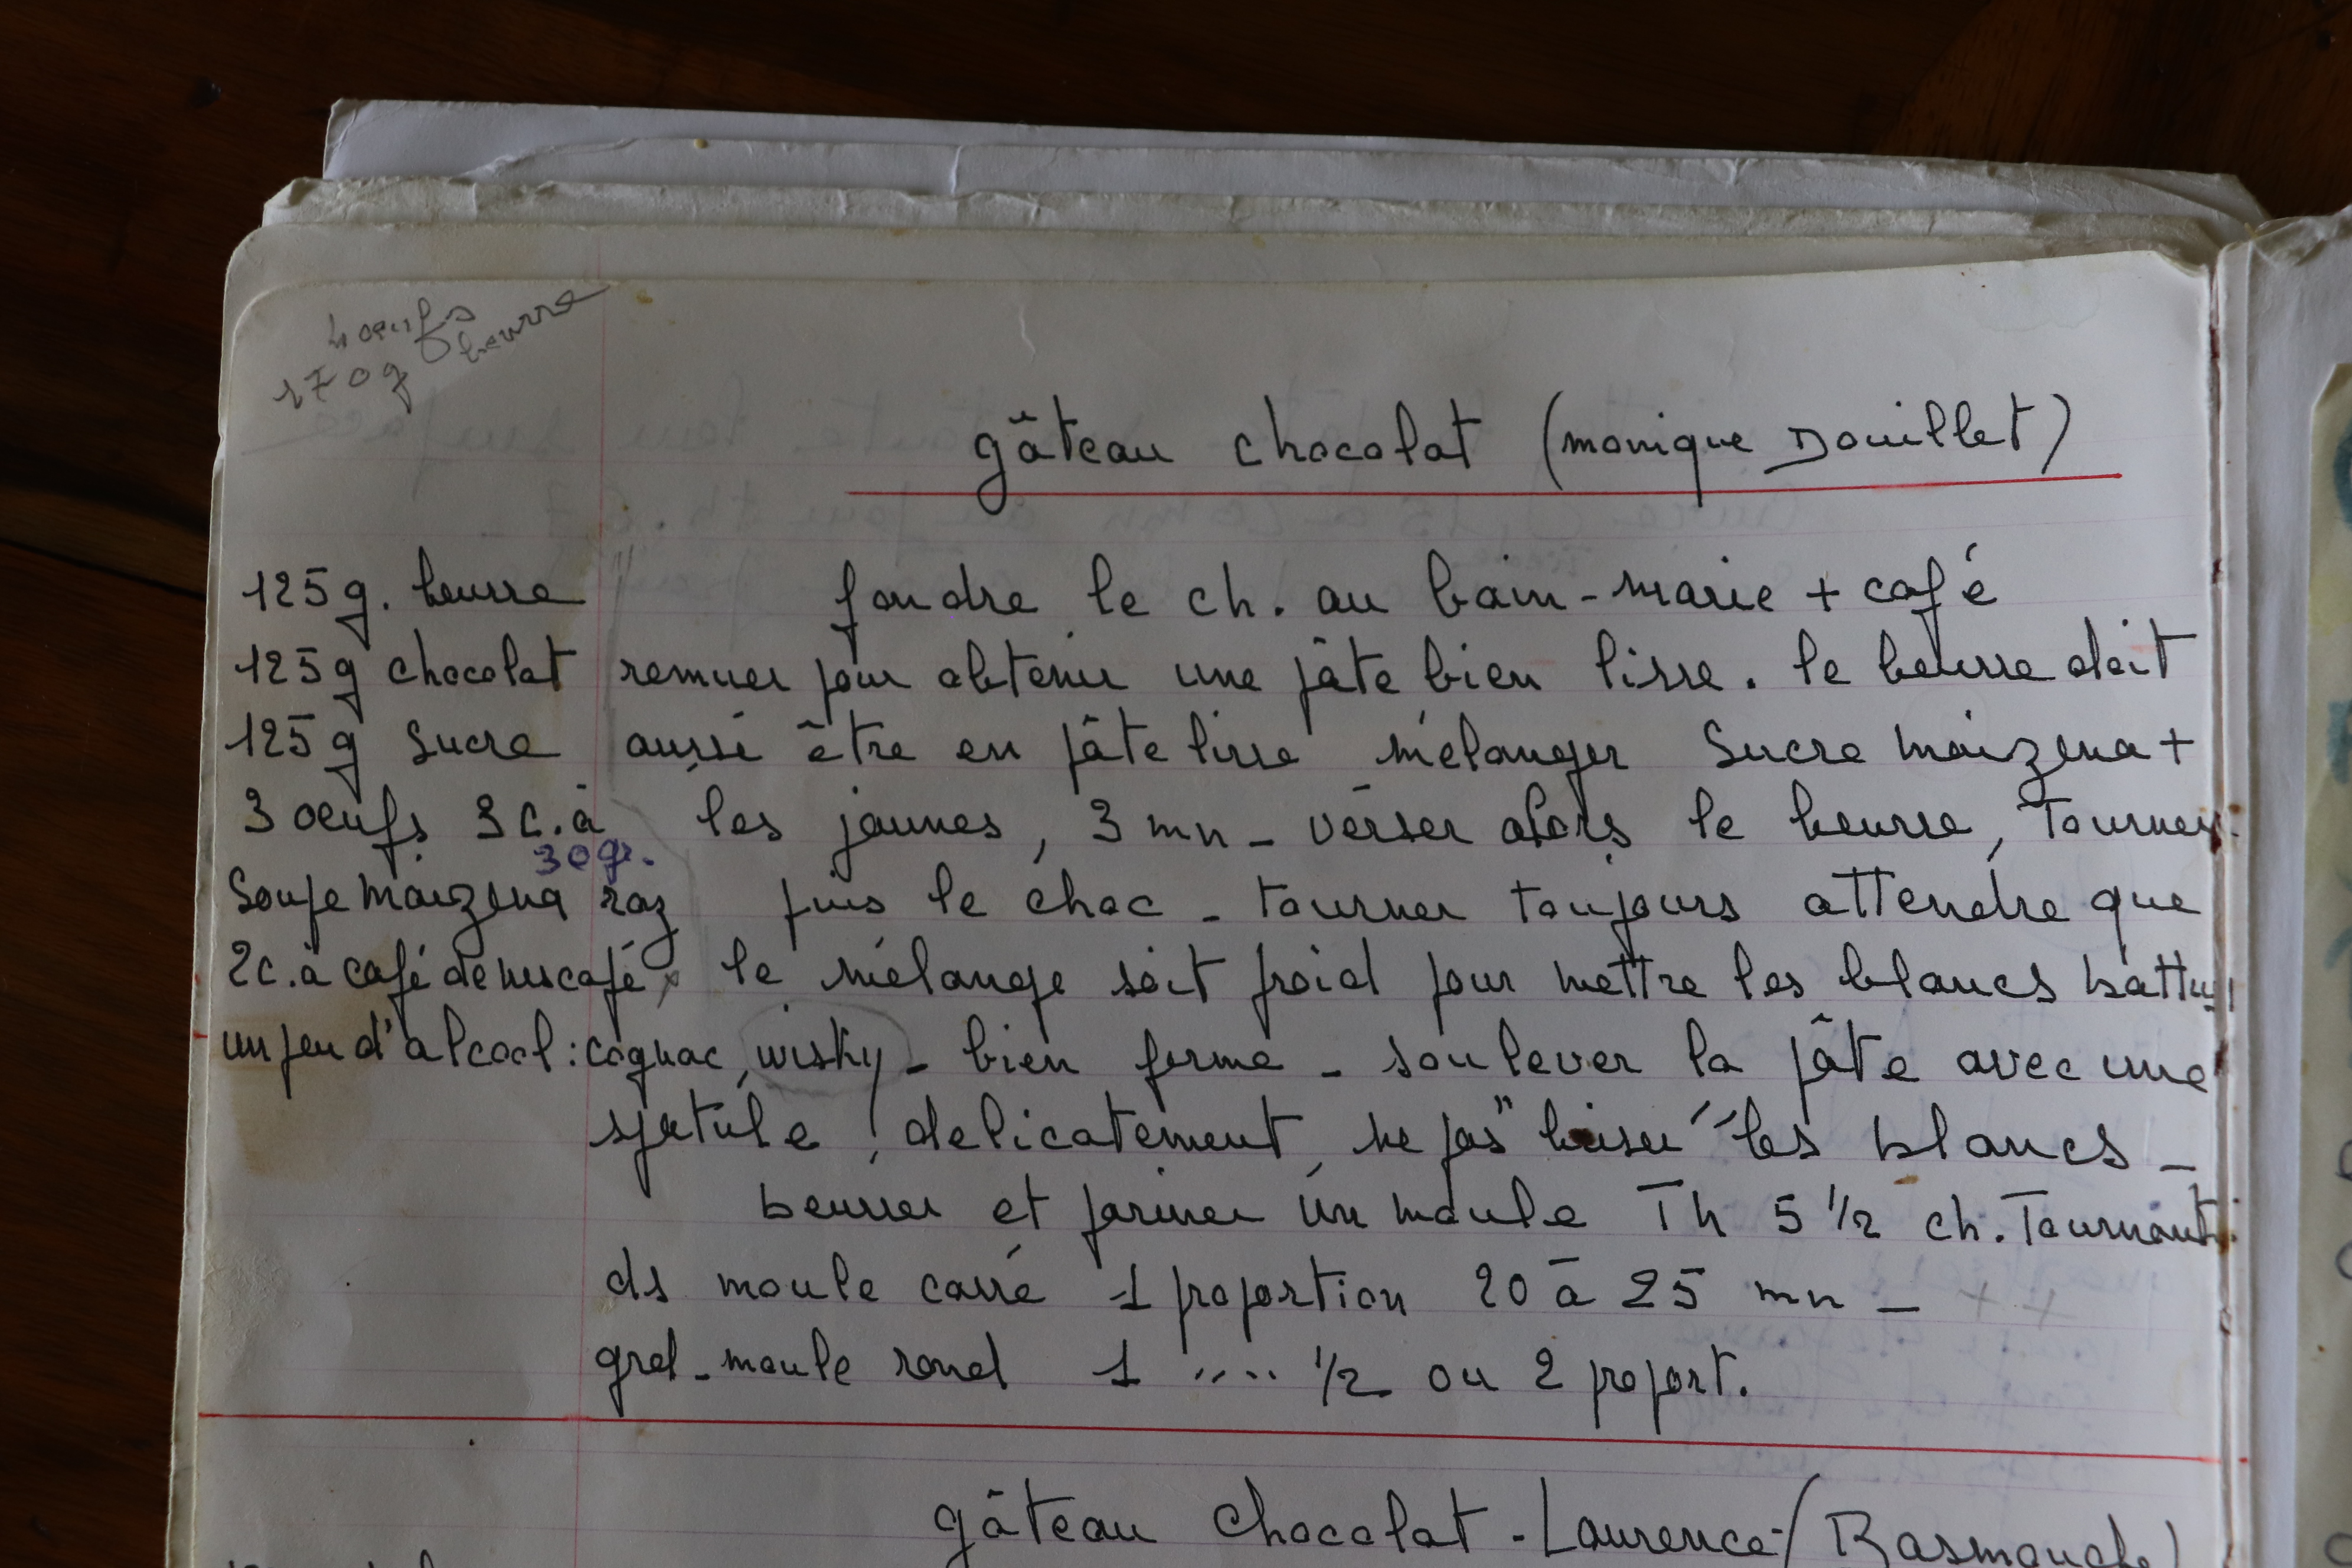 4 oeufs
170g beurre
gâteau chocolat (monique Douillet)
125g. beurre fondre le ch. au bain-marie + café
125g chocolat remuer pour obtenir une pâte bien lisse. le beurre doit
125g sucre aussi être en pâte lisse mélanger sucre maizena +
3 oeufs 3 c. à les jaunes, 3 mn - verser alors le beurre, tourner
30gr.
soupe maizena raz puis le choc - tourner toujours attendre que
2c. à café de nescafé le mélange soit froid pour mettre les blancs battus
un peu d'alcool : cognac, wisky - bien ferme - soulever la pâte avec une
spatule, délicatement, ne pas "briser" les blancs -
beurrer et fariner un moule Th 5 1/2 ch. Tournant
ds moule carré 1 proportion 20 à 25 mn -
grd-moule rond 1 .... 1/2 ou 2 proport.
gâteau chocolat - Laurence (